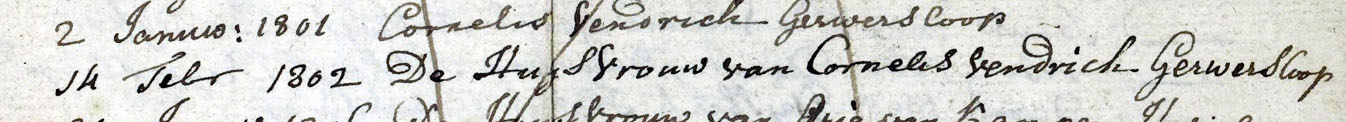 2 Januw: 1801 Cornelis Vendrich Gerwerscoop
14 Febr 1802 De Huysvrouw van Cornelis Vendrich Gerwerscoop
De Huysvrouw van Arie van